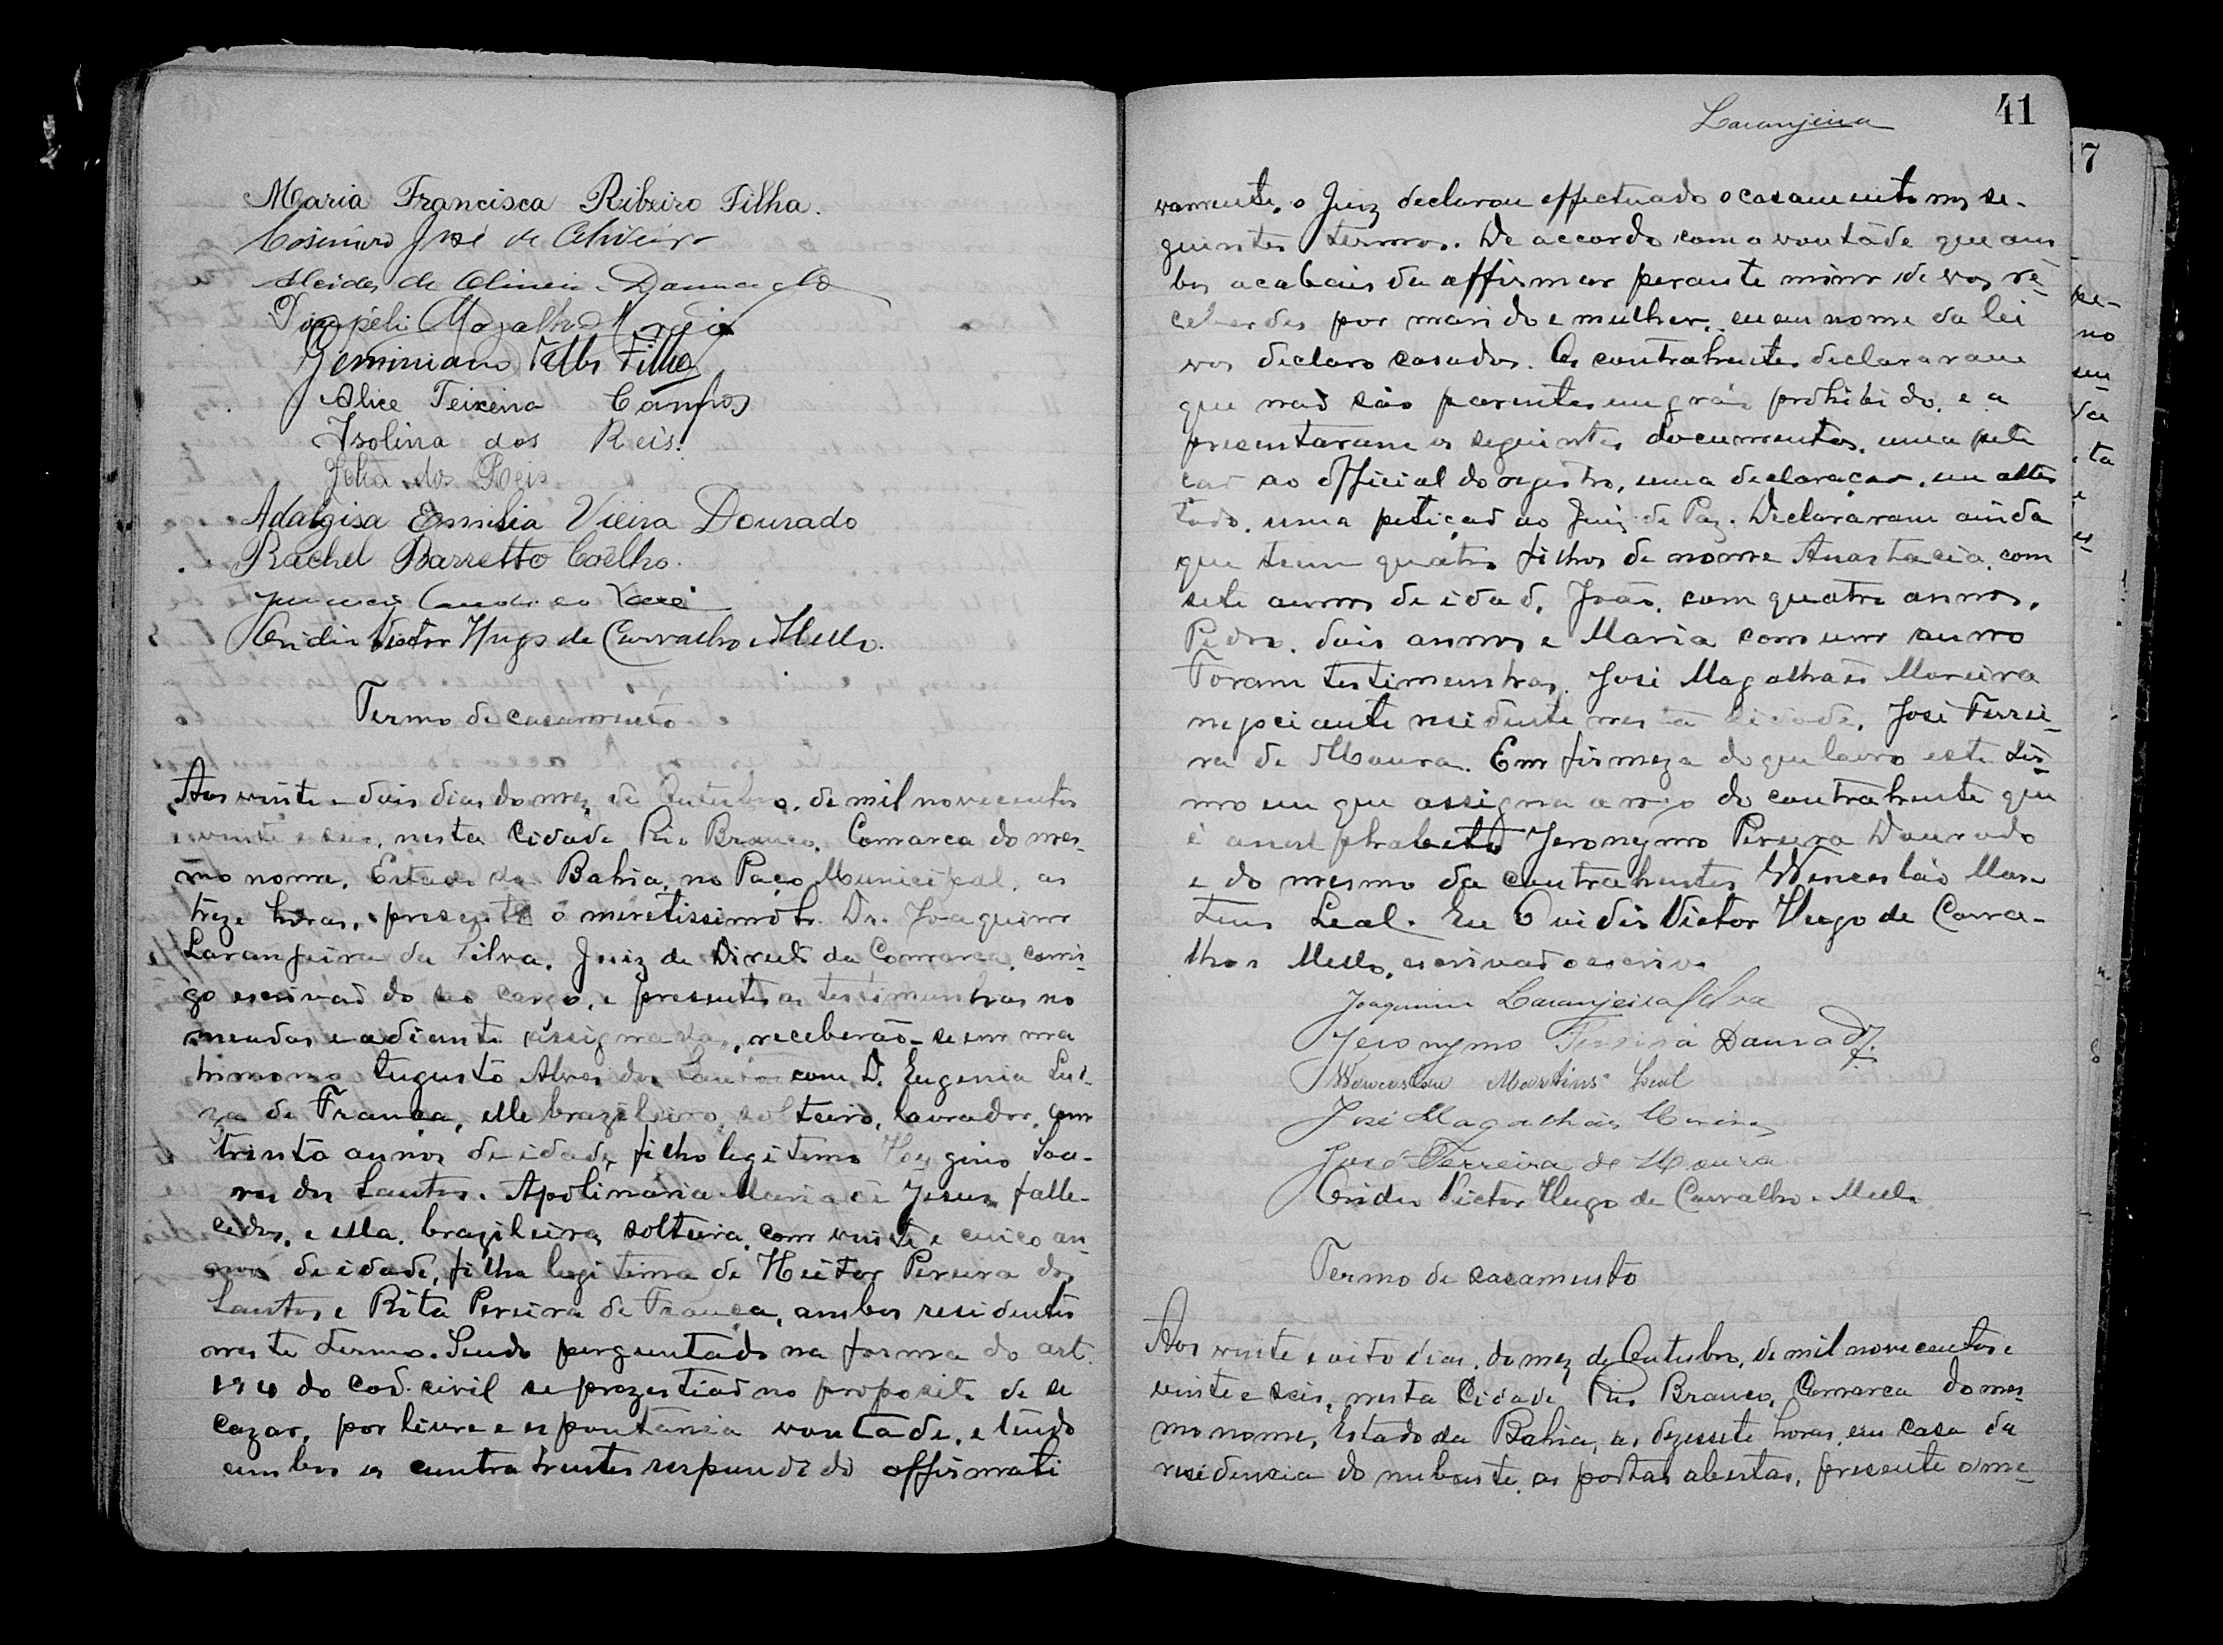 Maria Francisca Ribeiro Filha.
José de Oliveira
Alcides de Oliveira Dourado
Magalhães
Geminiano Telles Filho
Alice Teixeira Campos
Isolina dos Reis.
Julia dos Reis
Adalgisa Emilia Vieira Dourado
Rachel Barretto Coêlho.
Ovidio Victor Hugo de Carvalho e Mello.
Termo de casamento
Aos vinte e dois dias do mez de Outubro, de mil novecentos
e vinte e seis, nesta Cidade Rio Branco, Comarca do mes-
mo nome, Estado da Bahia, no Paço Municipal, as
treze horas, presente o meretissimo Sr. Dr. Joaquim
Laranjeira da Silva, Juiz de Direito da Comarca, comi-
go escrivaõ do seo cargo, e presentes as testimunhas no
meadas e adiante assignadas, receberaõ-se em ma
trimonio Augusto Alves dos Santos com D. Eugenia Lui-
za de França, elle brazileiro, solteiro, lavrador, com
trinta annos de idade, filho legitimo Hygino Soa-
res dos Santos. Apolinaria Maria de Jesus, falle-
cidos, e ella, brazileira, solteira, com vinte e cinco an-
nos de idade, filha legitima de Heitor Pereira dos
Santos e Rita Pereira de França, ambos residentes
neste termo. Sendo perguntado na forma do art.
194 do Cod. civil se prezestiaõ no proposito de se
cazar, por livre e espontania vontade, e tendo
ambos os contrahentes respondido affirmati
Laranjeira
41
vamente, o Juiz declarou effectuado o casamento nos se-
guintes termos. De accordo com a vontade que am
bos acabais de affirmar perante mim de vos re-
ceberdes por marido e mulher, eu em nome da lei
vos declaro casados. Os contrahentes declararam
que naõ são parentes em gráo prohibido, e a
presentaram os seguintes documentos, uma peti
çaõ ao official do registro, uma declaraçaõ, um attes
tado, uma petiçaõ ao Juiz de Paz. Declararam ainda
que teem quatro filhos de nome Anastacia, com
sete annos de idade, João, com quatro annos,
Pedro, dois annos e Maria com um anno
Foram testimunhas, José Magalhães Moreira
negociante residente nesta cidade, José Ferrei-
ra de Moura. Em firmeza do que lavro este ter-
mo em que assigna a rogo do contrahente que
é analphabeto Jeronymo Pereira Dourado
e do mesmo da contrahentes Wenceslão Mar
tins Leal. Eu Ovidio Victor Hugo de Carva-
lho e Mello, escrivaõ o escrivo
Joaquim Laranjeira Silva
Jeronymo Pereira Dourado
Wenceslau Martins Leal
José Magalhães Moreira
José Ferreira de Moura
Ovidio Victor Hugo de Carvalho e Mello
Termo de casamento
Aos vinte e oito dias, do mez de Outubro, de mil novecentos e
vinte e seis, nesta Cidade Rio Branco, Comarca do mes-
mo nome, Estado da Bahia, as dezessete horas, em casa da
residencia do nubente, as portas abertas, presente o me-
7
pe-
no
da
ta